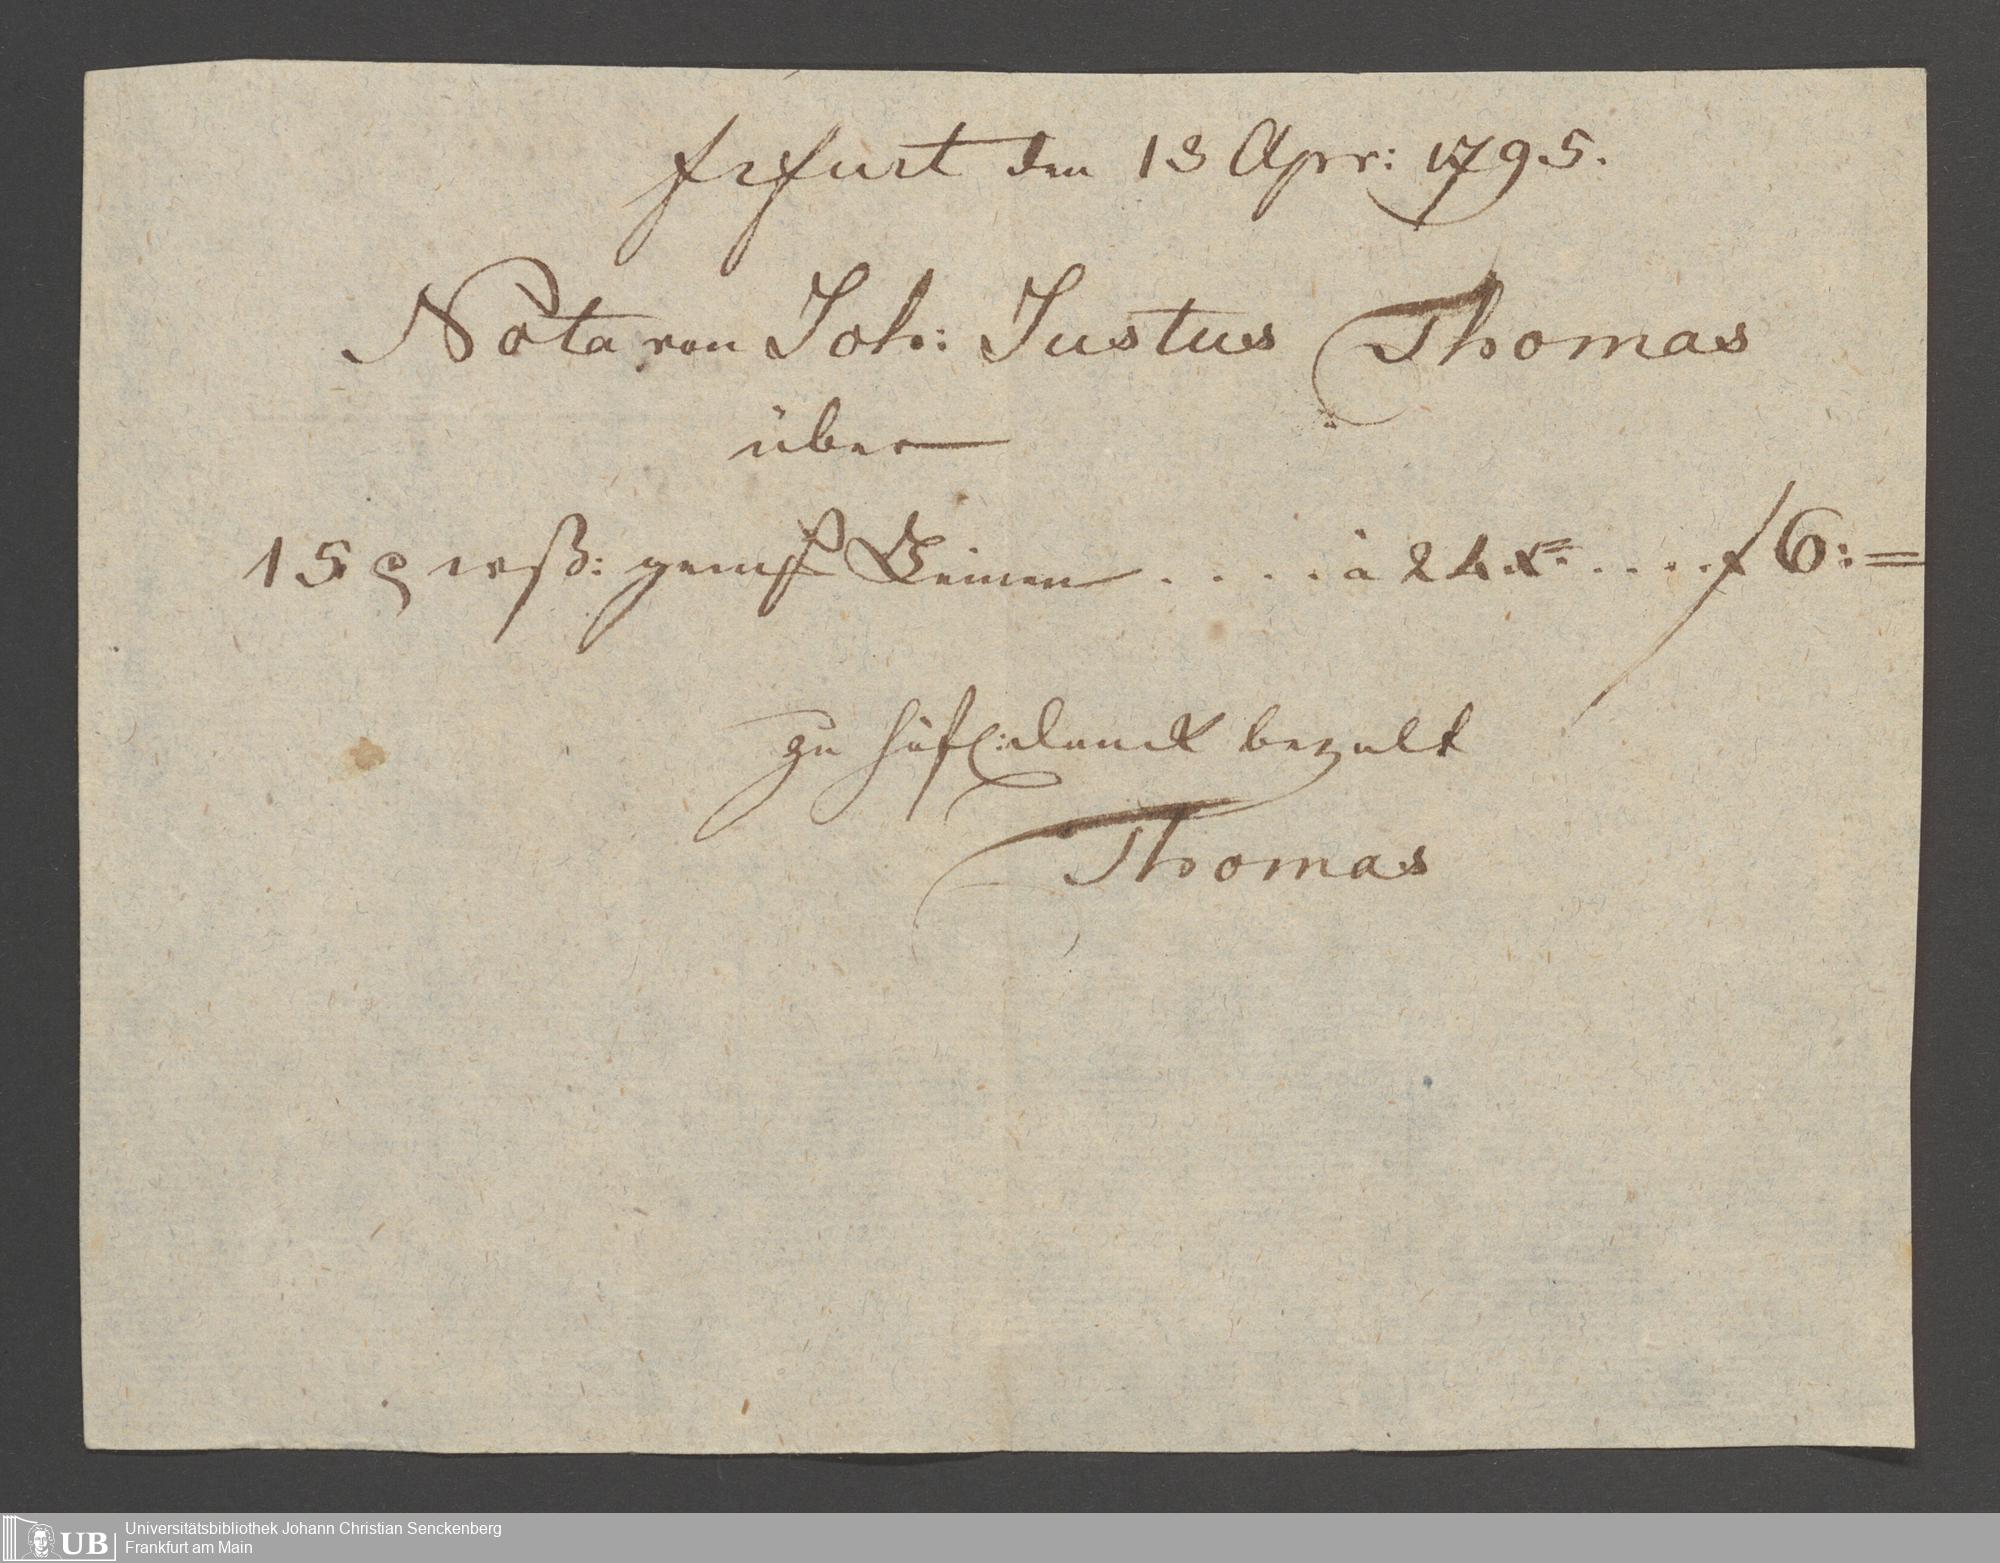 Erfurt den 13 Apr: 1795.
Nota von Joh: Justus Thomas
über
15 weß: Leinen .... à 24 xr ..... f 6: =
zu höfl: danck bezalt
Thomas
UB
Universitätsbibliothek Johann Christian Senckenberg
Frankfurt am Main